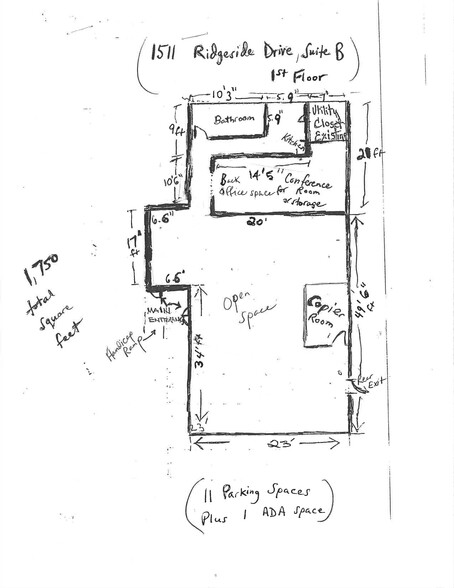 1511 Ridgeside Drive, Suite B
1st Floor
10'3"
5.9"
7'
Bathroom
5.9"
Utility
Closet
Existing
9 ft
Kitchen
21 ft
10'6"
14'5"
Back
Office space for
Conference
Room
or storage
6.6"
20'
17"
ft
1,750
total
square
feet
6.6"
MAIN
ENTRANCE
Handicap
Ramp
Open
Space
Copier
Room
49'6"
ft
34' ft
Rear
Exit
23'
23'
(11 Parking Spaces
Plus 1 ADA space)